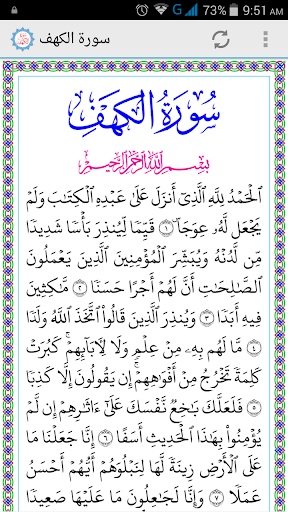 73% 9:51 AM
سورة الكهف
سُورَةُ الكَهْفِ
بِسْمِ اللَّهِ الرَّحْمَٰنِ الرَّحِيمِ
ٱلْحَمْدُ لِلَّهِ ٱلَّذِىٓ أَنزَلَ عَلَىٰ عَبْدِهِ ٱلْكِتَٰبَ وَلَمْ
يَجْعَل لَّهُۥ عِوَجَا ۜ ١ قَيِّمًا لِّيُنذِرَ بَأْسًا شَدِيدًا
مِّن لَّدُنْهُ وَيُبَشِّرَ ٱلْمُؤْمِنِينَ ٱلَّذِينَ يَعْمَلُونَ
ٱلصَّٰلِحَٰتِ أَنَّ لَهُمْ أَجْرًا حَسَنًا ٢ مَّٰكِثِينَ
فِيهِ أَبَدًا ٣ وَيُنذِرَ ٱلَّذِينَ قَالُوا۟ ٱتَّخَذَ ٱللَّهُ وَلَدًا
٤ مَّا لَهُم بِهِۦ مِنْ عِلْمٍ وَلَا لِءَابَآئِهِمْ ۚ كَبُرَتْ
كَلِمَةً تَخْرُجُ مِنْ أَفْوَٰهِهِمْ ۚ إِن يَقُولُونَ إِلَّا كَذِبًا
٥ فَلَعَلَّكَ بَٰخِعٌ نَّفْسَكَ عَلَىٰٓ ءَاثَٰرِهِمْ إِن لَّمْ
يُؤْمِنُوا۟ بِهَٰذَا ٱلْحَدِيثِ أَسَفًا ٦ إِنَّا جَعَلْنَا مَا
عَلَى ٱلْأَرْضِ زِينَةً لَّهَا لِنَبْلُوَهُمْ أَيُّهُمْ أَحْسَنُ
عَمَلًا ٧ وَإِنَّا لَجَٰعِلُونَ مَا عَلَيْهَا صَعِيدًا